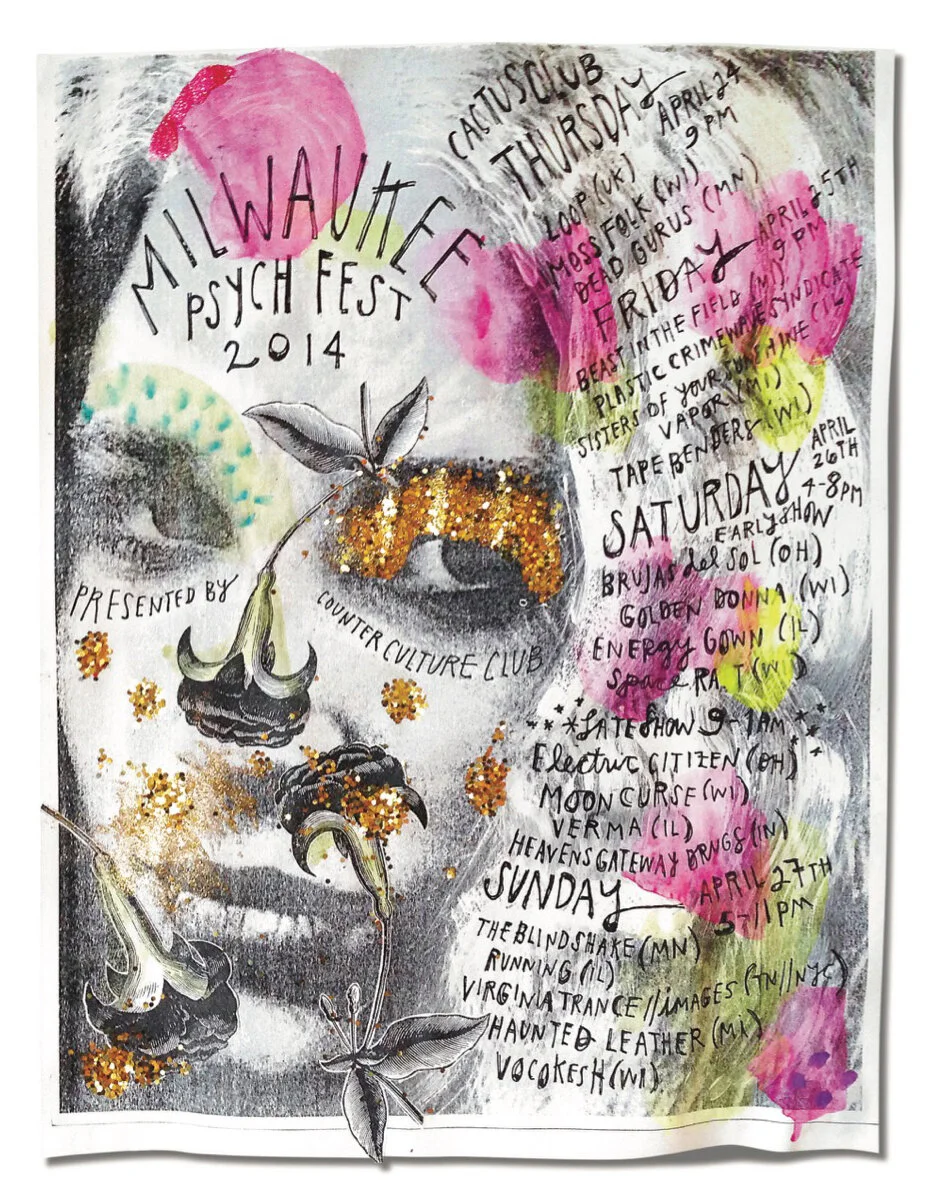 MILWAUKEE
PSYCH FEST
2014
PRESENTED BY
COUNTER CULTURE CLUB
CACTUS CLUB
THURSDAY APRIL 24
9 PM
LOOP (UK)
MOSS FOLK (WI)
DEAD GURUS (MN)
FRIDAY APRIL 25TH
9 PM
BEAST IN THE FIELD (MI)
PLASTIC CRIMEWAVE SYNDICATE
SISTERS OF YOUR SUNSHINE (IL)
VAPOR (MI)
TAPE BENDERS (WI)
SATURDAY APRIL
26TH
4-8PM
EARLY SHOW
BRUJAS del SOL (OH)
GOLDEN DONNA (WI)
ENERGY GOWN (IL)
Space RA.T (WI)
***LATE SHOW 9-1AM***
Electric CITIZEN (OH)
MOON CURSE (WI)
VERMA (IL)
HEAVENS GATEWAY DRUGS (IN)
SUNDAY APRIL 27TH
5-11PM
THE BLIND SHAKE (MN)
RUNNING (IL)
VIRGINIA TRANCE//IMAGES (TN//NYC)
HAUNTED LEATHER (MI)
VOCOKESH (WI)